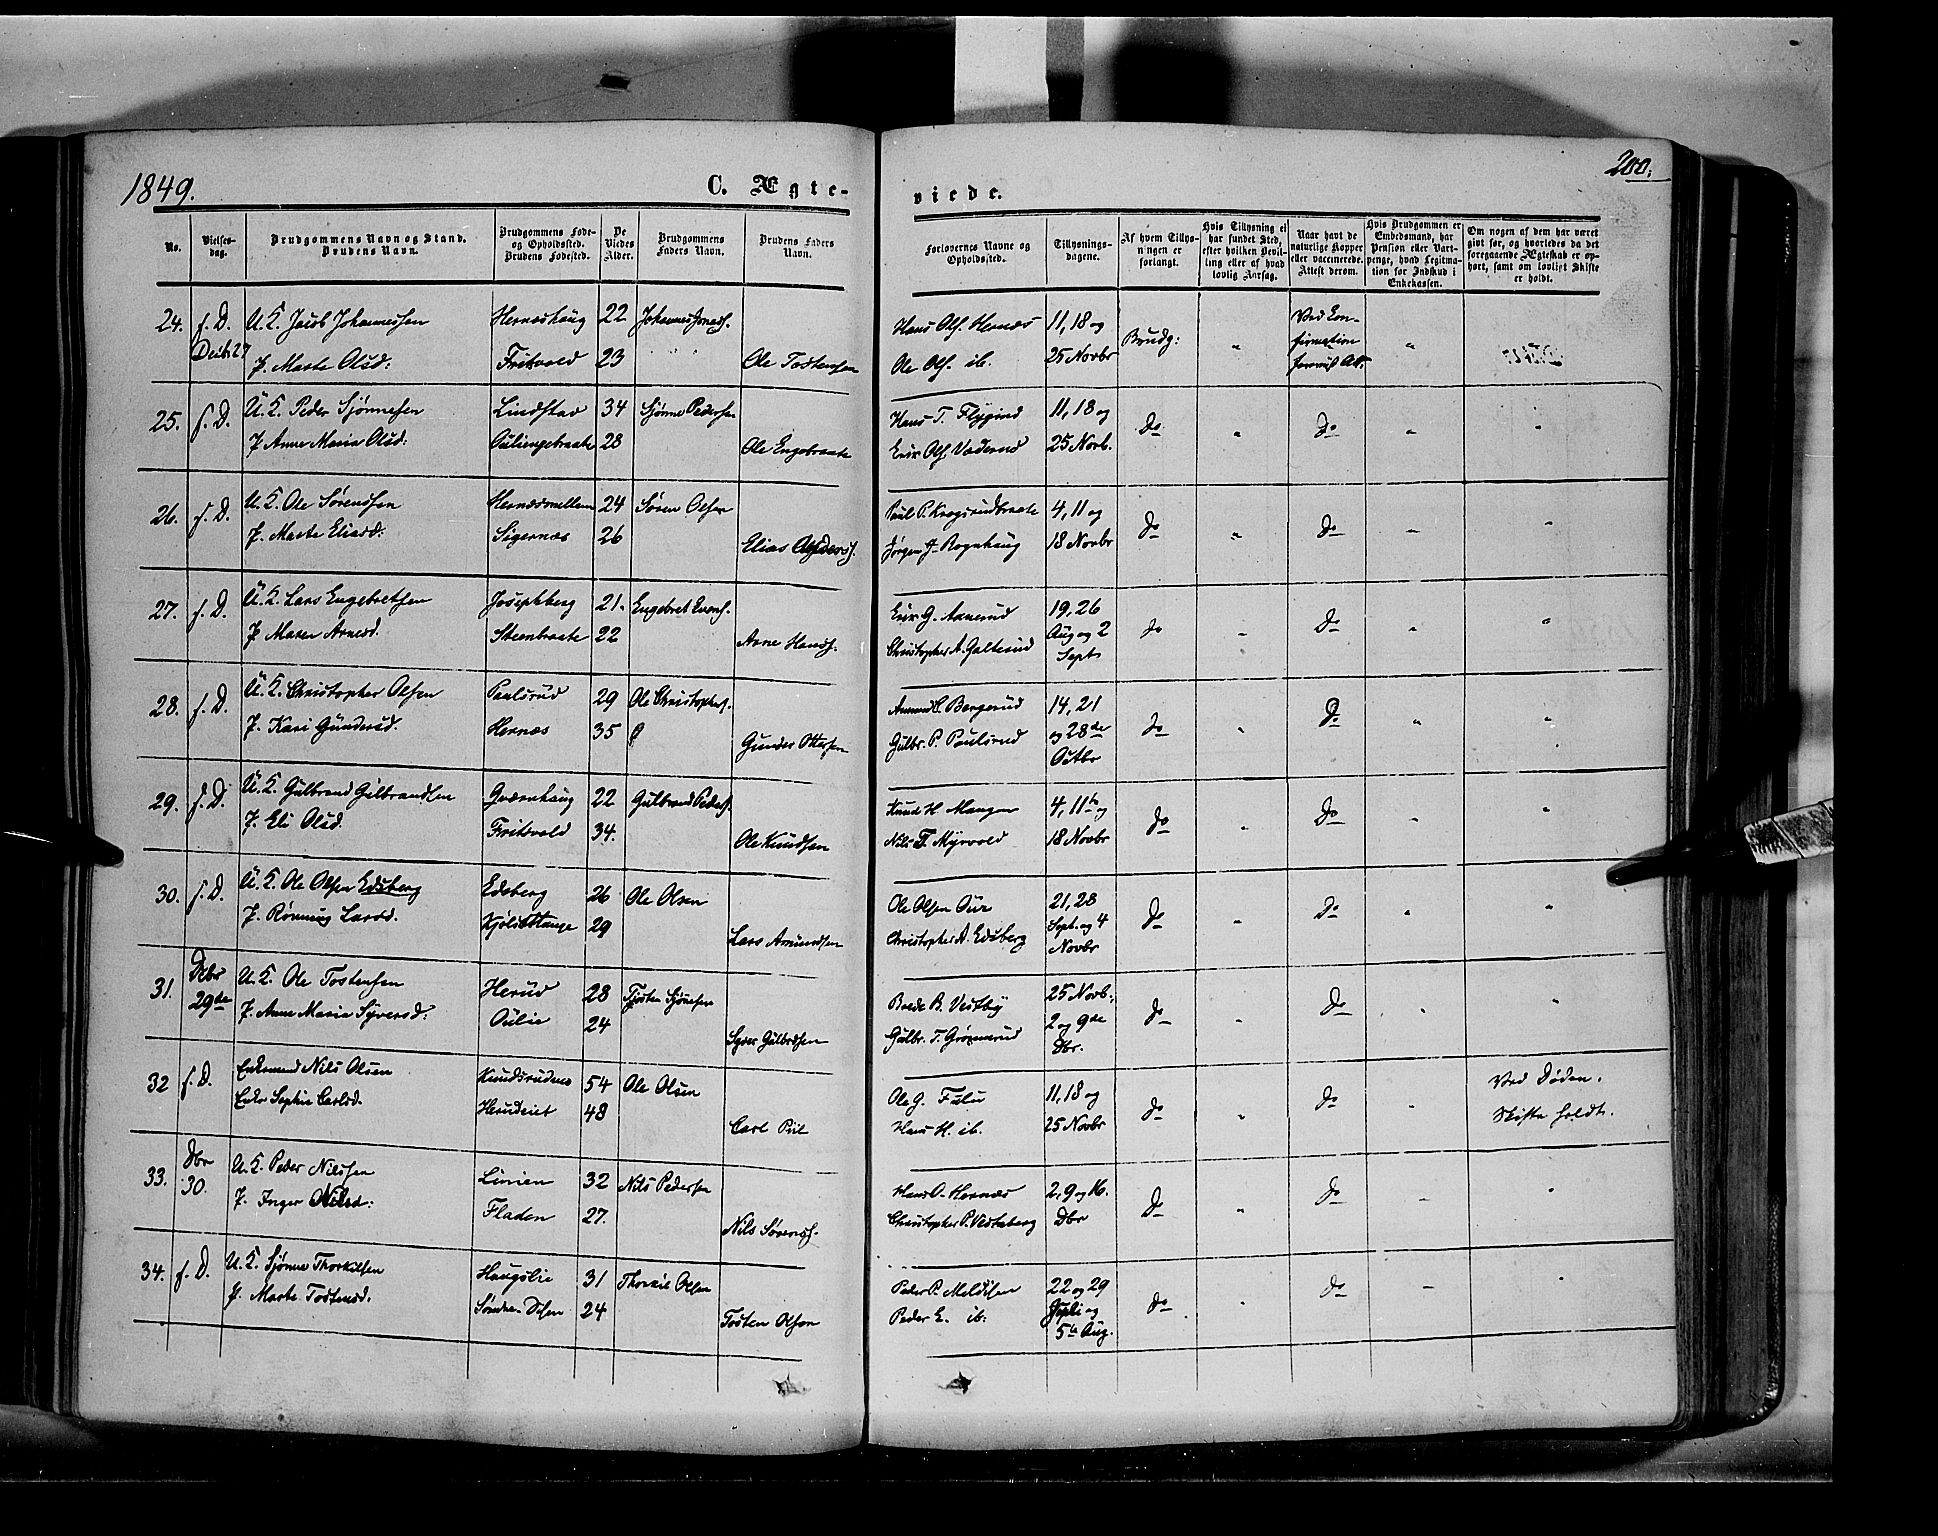 1849.
C. Ægte-
viede.
200.
No.
Vielses-
dag.
Brudgommens Navn og Stand.
Brudens Navn.
Brudgommens Føde-
og Opholdssted.
Brudens Fødested.
De
Viedes
Alder.
Brudgommens
Faders Navn.
Brudens Faders
Navn.
Forlovernes Navne og
Opholdssted.
Tillysnings-
dagene.
Af hvem Tillys-
ningen er
forlangt.
Hvis Tillysning ei
har fundet Sted,
efter hvilken Bevil-
ling eller af hvad
lovlig Aarsag.
Naar havt de
naturlige Kopper
eller vaccinerede.
Attest derom.
Hvis Brudgommen er
Embedsmand, har
Pension eller Vart-
penge, hvad Legitima-
tion for Indskud i
Enkekassen.
Om nogen af dem har været
gift før, og hvorledes da det
foregaaende Ægteskab er op-
hørt, samt om lovligt Skifte
er holdt.
24. f. D. U. K. Jacob Johannessen Hernæshaug 22 Johannes Jonass. Hans Ols. Hernæs 11, 18 og Brudg: " Ved Con-
firmation
Decbr 27 P. Marte Olsd: Fritsvold 23 Ole Tostensen Ole Ols. ib. 25 Novbr Att.
25. f. D. U. K. Peder Sjønnesen Lindstad 34 Sjønne Pedersen Hans T. Flygind 11, 18 og Do " Do " "
P. Anne Maria Olsd: Ouliengebraate 28 Ole Engebraate Eric Ols. Vaderud 25 Novb.
26. f. D. U. K. Ole Sørenssen Hernæsmellem 24 Søren Olsen Paul P. Kragsrudbraate 4, 11 og Do " Do " "
P. Marte Eliasd: Sigernæs 26 Elias Anders. Jørgen J. Rognhaug 18 Novbr
27. f. D. U. K. Lars Engebretsen Josephberg 21. Engebret Evens. Eric G. Aanerud 19, 26 do " Do " "
P. Maren Arnesd. Steenbraate 22 Arne Hanss. Christopher A. Galterud Aug og 2
Sept.
28. f. D. U. K. Christopher Olsen Paulsrud 29 Ole Christophers. Amund C. Bergerud 14, 21 do " Do " "
P. Kari Gundersd. Hernæs 35 Gunder Ottersen Gulbr. P. Paulsrud og 28de
Octbr
29. f. D. U. K. Gulbrand Gulbrandsen Qværnhaug 22 Gulbrand Peders. Knud H. Mangen 4, 11te og Do " Do " "
P. Eli Olsd. Fritsvold 34. Ole Knudsen Nils T. Myrvold 18 Novbr
30. f. D. U. K. Ole Olsen Edsberg Edsberg 26 Ole Olsen Ole Olsen Our 21, 28 Do " Do " "
P. Rønnaug Larsd. Kjølsethange 29 Lars Amundsen Christopher A. Edsberg Sept. og 4
Novbr
31. Dcbr
29de U. K. Ole Tostensen Herud 28 Tosten Sjønesen Brede B. Vestby 25 Novb. Do " Do " "
P. Anne Marie Syversd: Oulie 24 Syver Gulbrdsen Gulbr. T. Grønnerud 2 og 9de
Dbr.
32 f. D. Enkemand Nils Olsen Knudsrudnæs 54 Ole Olsen Ole G. Fulu 11, 18 og Do " Do " Ved Døden.
Enke Sophie Carlsd. Herudeiet 48 Carl Piil Hans H. ib. 25 Novbr Skifte holdt.
33. Dbr
30. U. K. Peder Nilssen Linien 32 Nils Pedersen Hans O. Hernæs 2, 9 og 16. Do " Do " "
P. Inger Nilsd: Fladen 27. Nils Sørens. Christopher P. Vestaberg Dbr
34. f. D. U. K. Sjønne Thorkilsen Haugslie 31 Thorkil Olsen Peder P. Meldisen 22 og 29 Do " Do " "
P. Marte Tostensd. Søndre Ousen 24 Tosten Olsen Peder E. ib: Juli og
5te Aug.